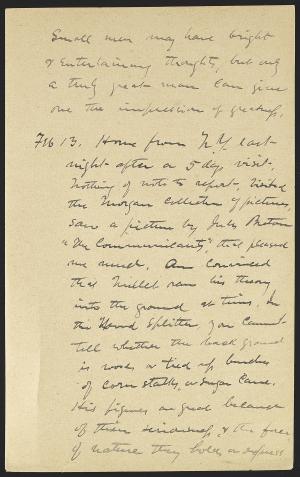 Small men may have bright
& entertaining thoughts, but only
a truly great man can give
one the impression of greatness.
Feb 13. Home from N.Y. last
night after a 5 days visit.
Nothing of note to report. Visited
the Morgan Collection of pictures,
saw a picture by Jules Breton
"The Communicants," that pleased
me much. Am convinced
that Millet ran his theory
into the ground at times. In
the Wood Splitter you cannot
tell whether the back ground
is woods or tied up bundles
of corn stalks, or sugar cane.
His figures are good because
of their sincerity, & the force
of nature they hold or express